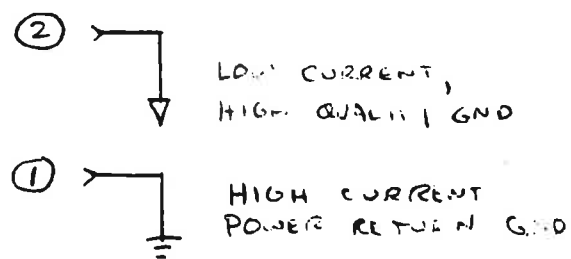 2
LOW CURRENT,
HIGH QUALITY GND
1
HIGH CURRENT
POWER RETURN GND